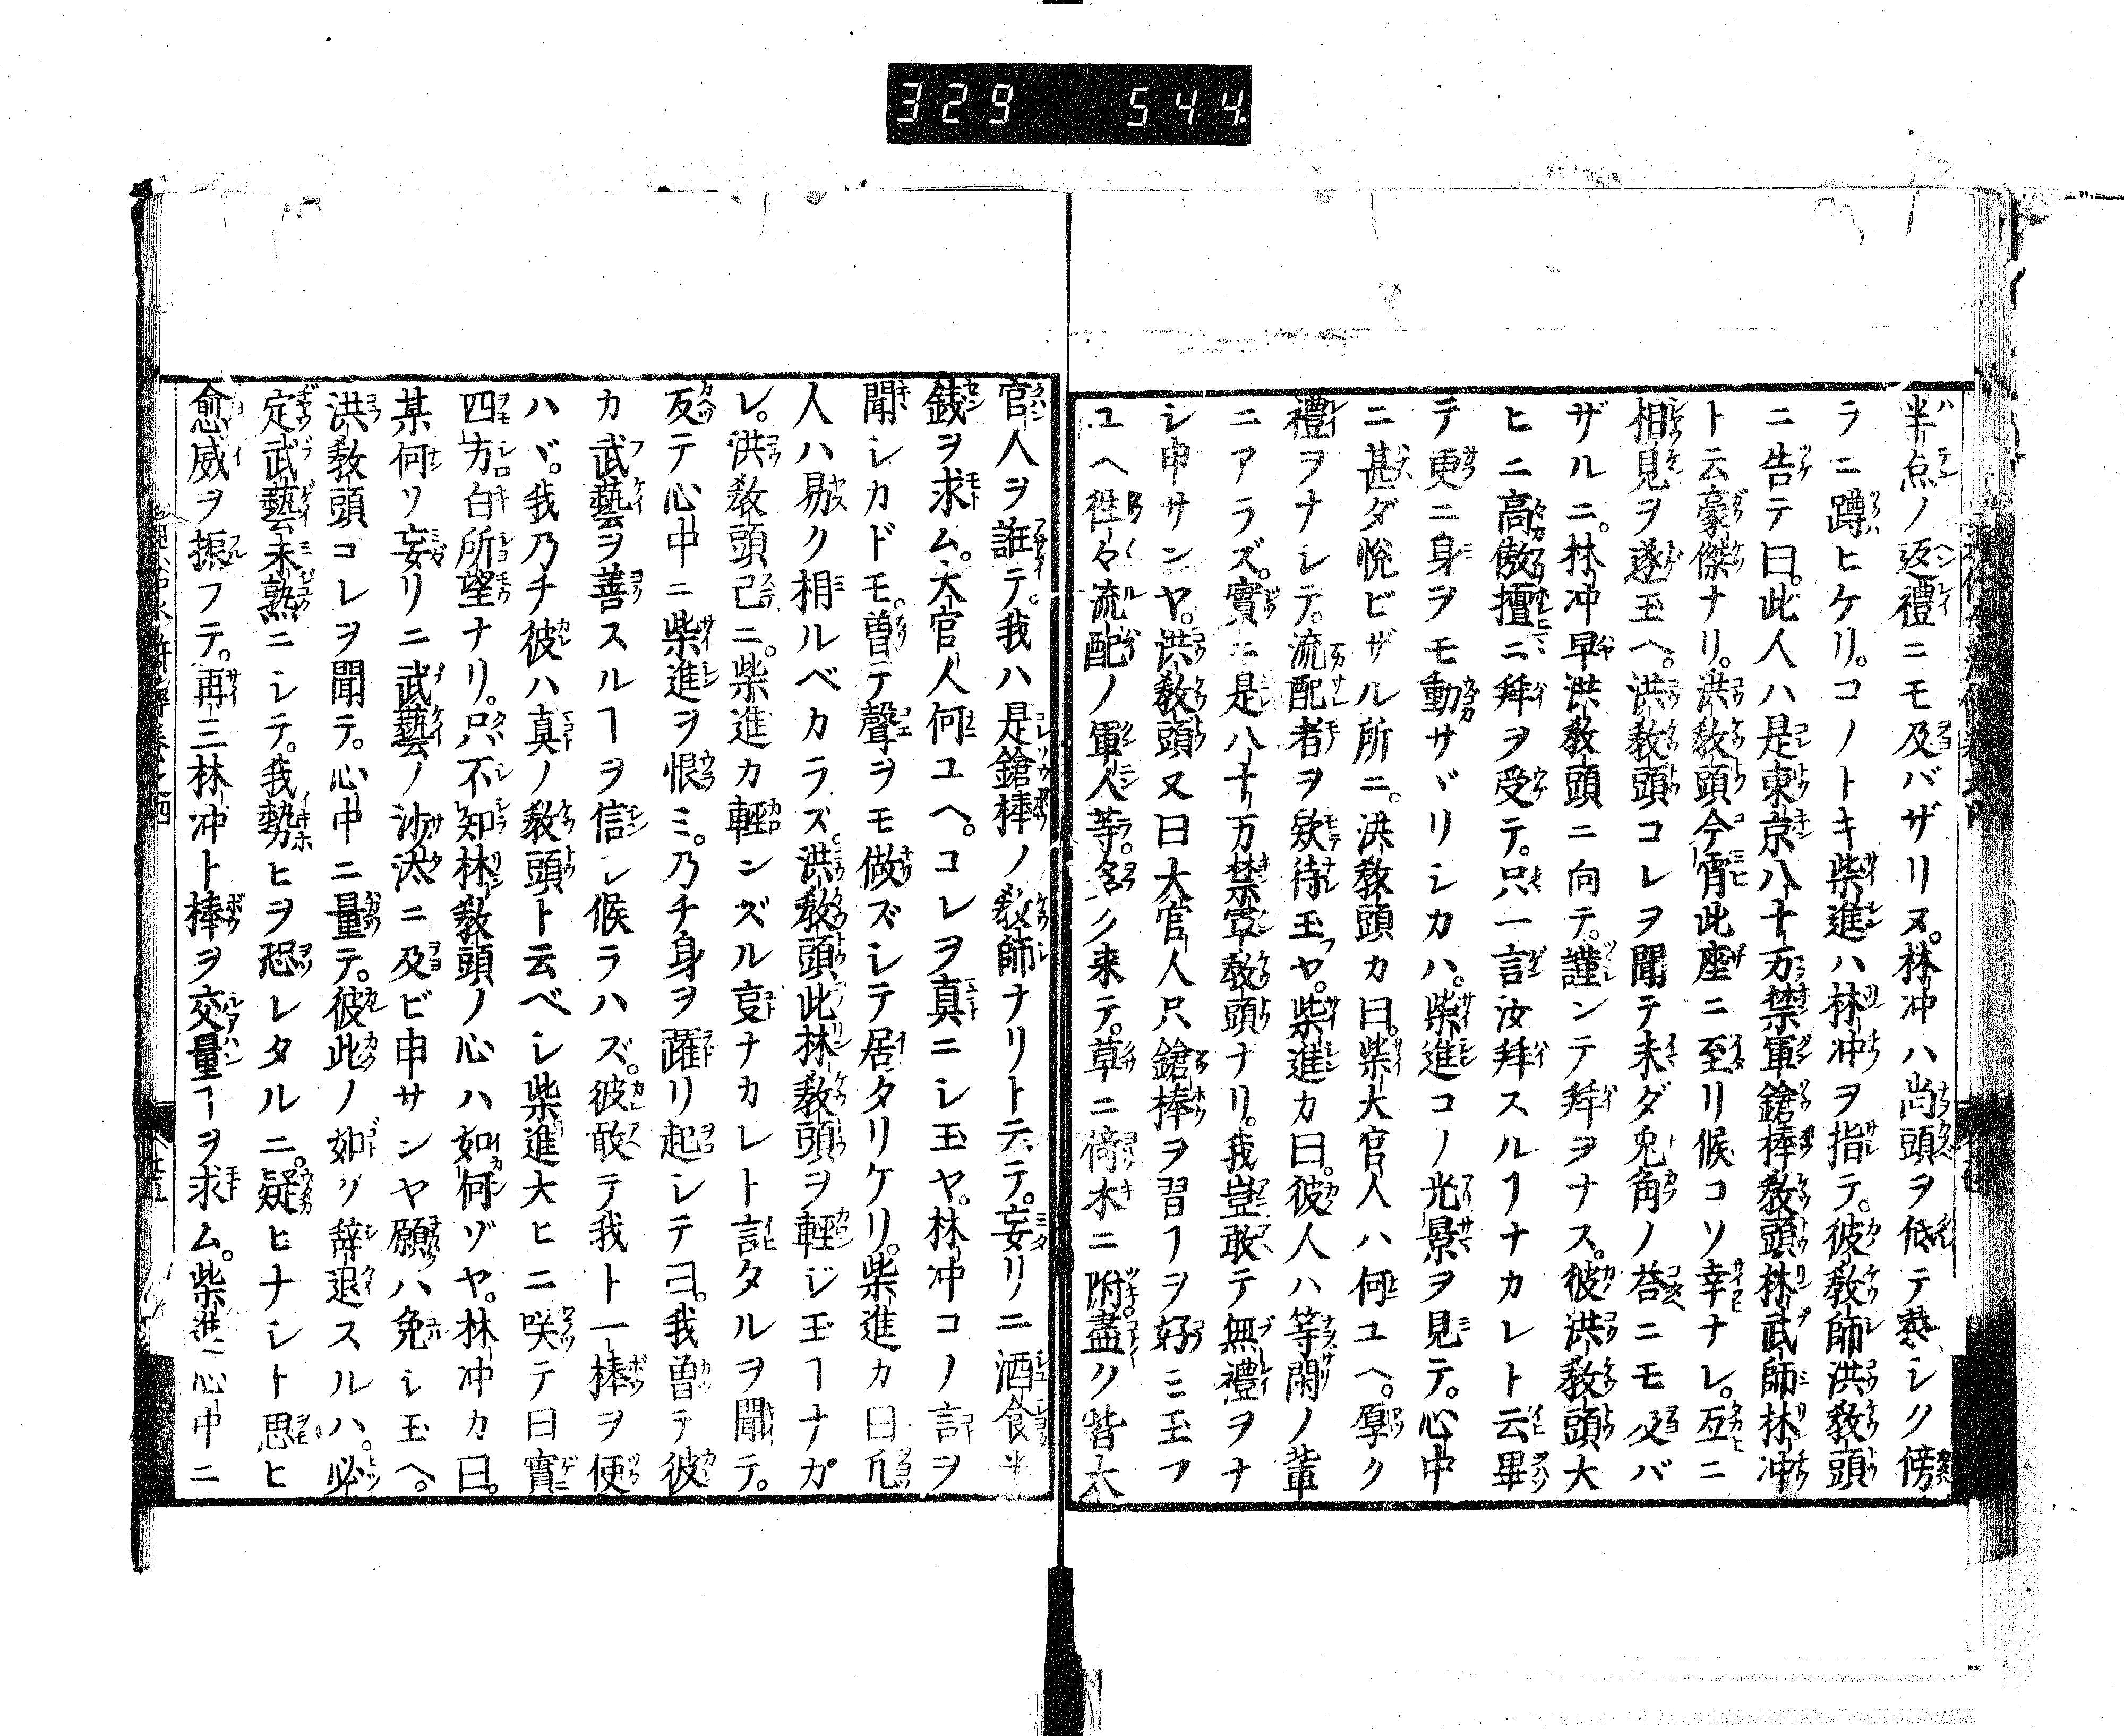 329 544
半点ノ返禮ニモ及バザリヌ。林冲ハ尚頭ヲ低テ恭シク傍
ラニ蹲ヒケリ。コノトキ柴進ハ林冲ヲ指テ。彼教師洪教頭
ニ告テ曰。此人ハ是東京八十万禁軍鎗棒教頭林武師林冲
ト云豪傑ナリ。洪教頭今宵此座ニ至リ候コソ幸ナレ。互ニ
相見ヲ遂玉ヘ。洪教頭コレヲ聞テ未ダ兎角ノ荅ニモ及バ
ザルニ。林冲早洪教頭ニ向テ。謹ンテ拜ヲナス。彼洪教頭大
ヒニ高傲擅ニ拜ヲ受テ。只一言汝拜スルヿナカレト云畢
テ更ニ身ヲモ動サヾリシカハ。柴進コノ光景ヲ見テ。心中
ニ甚ダ悦ビザル所ニ。洪教頭カ曰。柴大官人ハ何ユヘ。厚ク
禮ヲナシテ。流配者ヲ欵待玉フヤ。柴進カ曰。彼人ハ等閑ノ輩
ニアラズ。實ニ是八十万禁軍教頭ナリ。我豈敢テ無禮ヲナ
シ申サンヤ。洪教頭又曰大官人只鎗棒ヲ習フヿヲ好ミ玉フ
ユヘ徃々流配ノ軍人等。多ク来テ。草ニ倚木ニ附。盡ク皆大
官人ヲ誑テ。我ハ是鎗棒ノ教師ナリト云テ。妄リニ酒食
錢ヲ求ム。大官人何ユヘ。コレヲ真ニシ玉ヤ。林冲コノ言ヲ
聞シカドモ。曽テ聲ヲモ做ズシテ居タリケリ。柴進カ曰凡
人ハ易ク相ルベカラズ。洪教頭此林教頭ヲ輕ジ玉ヿナカ
レ。洪教頭己ニ。柴進カ輕ンズル㕝ナカレト言タルヲ聞テ。
反テ心中ニ柴進ヲ恨ミ。乃チ身ヲ躍リ起シテ曰。我曽テ彼
カ武藝ヲ善スルヿヲ信シ候ラハズ。彼敢テ我ト一棒ヲ便
ハヾ。我乃チ彼ハ真ノ教頭ト云ベシ柴進大ヒニ咲テ曰實
四方白所望ナリ。只不知林教頭ノ心ハ如何ゾヤ。林冲カ曰。
某何ソ妄リニ武藝ノ沙汰ニ及ビ申サンヤ願ハ免シ玉ヘ。
洪教頭コレヲ聞テ。心中ニ量テ。彼此ノ如ク辞退スルハ。必
定武藝未熟ニシテ。我勢ヒヲ恐レタルニ。疑ヒナシト思ヒ
愈威ヲ振フテ。再三林冲ト棒ヲ交量ヿヲ求ム。柴進心中ニ